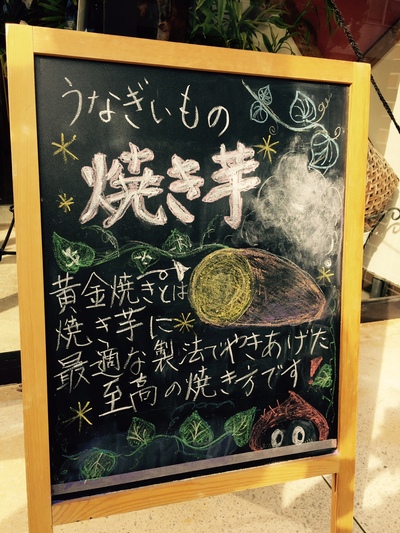 うなぎいもの
焼き芋
黄金焼きとは
焼き芋に
最適な製法でやきあげた
至高の焼き方です